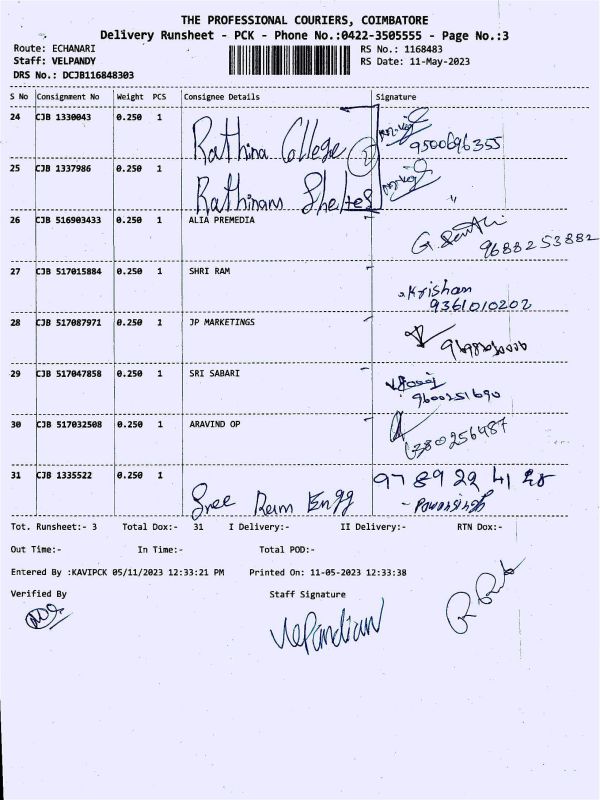 THE PROFESSIONAL COURIERS, COIMBATORE
Delivery Runsheet - PCK - Phone No.:0422-3505555 - Page No.:3
Route: ECHANARI RS No.: 1168483
Staff: VELPANDY RS Date: 11-May-2023
DRS No.: DCJB116848303
S No Consignment No Weight PCS Consignee Details Signature
24 CJB 1330043 0.250 1 Rathina College 9500696355
25 CJB 1337986 0.250 1 Rathinam "
26 CJB 516903433 0.250 1 ALIA PREMEDIA 9688253882
27 CJB 517015884 0.250 1 SHRI RAM Krishan 9361010202
28 CJB 517087971 0.250 1 JP MARKETINGS
29 CJB 517047858 0.250 1 SRI SABARI 9600251690
30 CJB 517032508 0.250 1 ARAVIND OP
31 CJB 1335522 0.250 1 Sree Ram Engg
Tot. Runsheet:- 3 Total Dox:- 31 I Delivery:- II Delivery:- RTN Dox:-
Out Time:- In Time:- Total POD:-
Entered By :KAVIPCK 05/11/2023 12:33:21 PM Printed On: 11-05-2023 12:33:38
Verified By Staff Signature
Velpandian